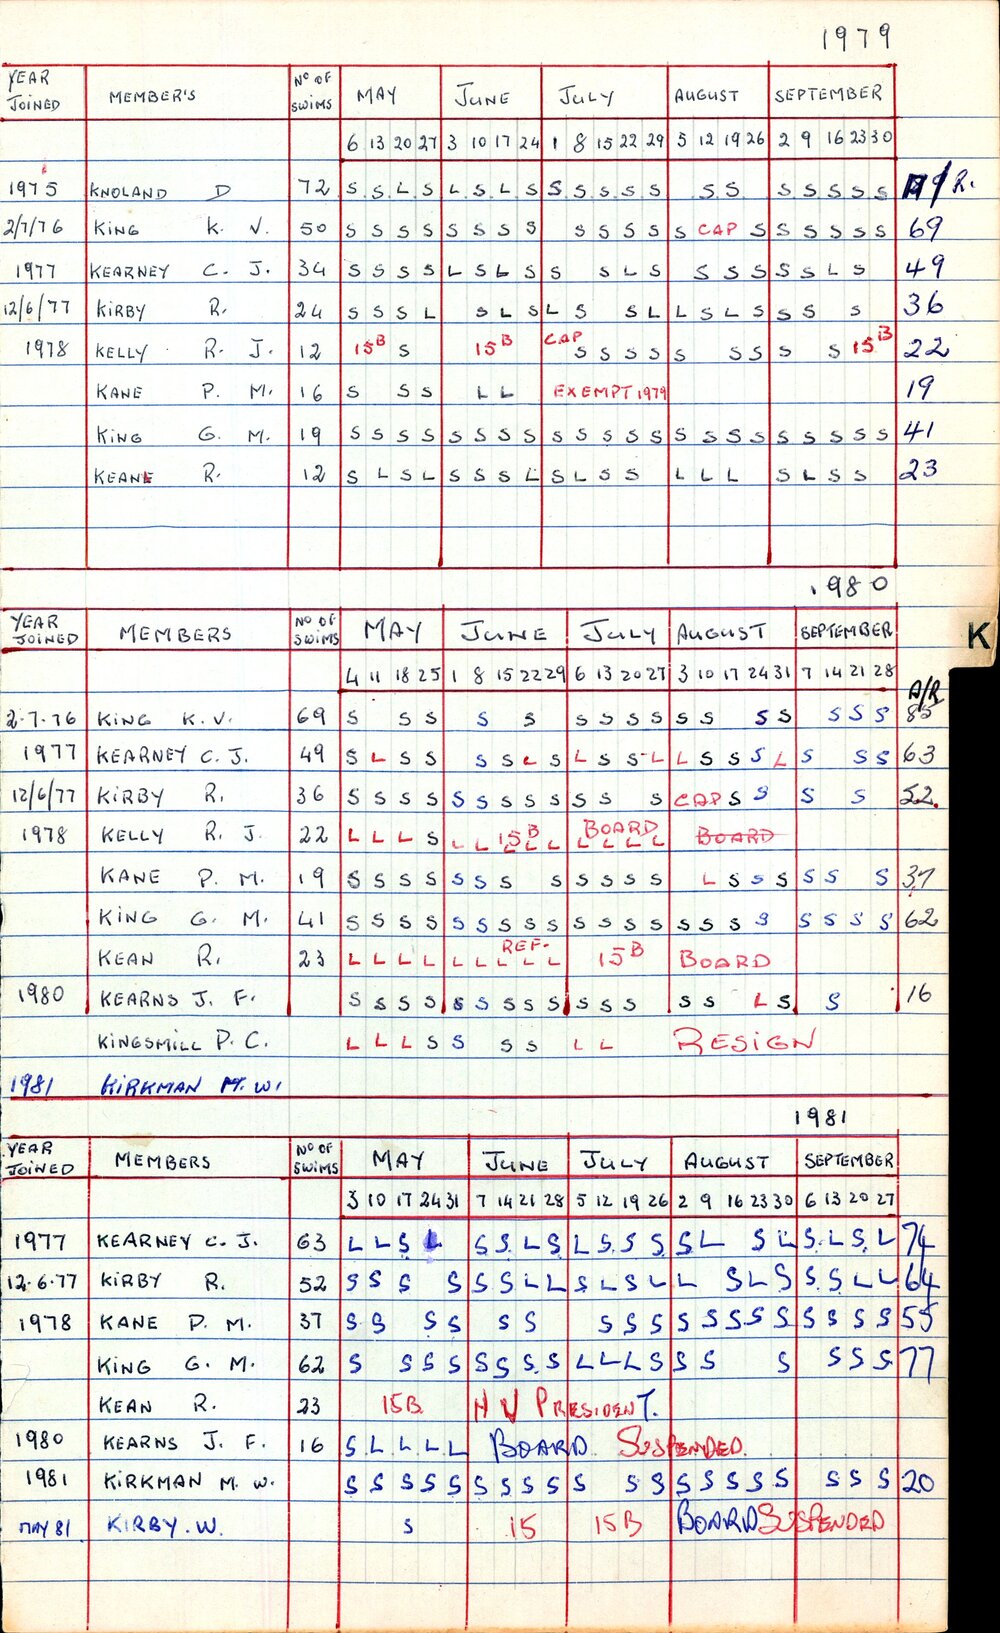 1979
YEAR JOINED MEMBER'S Nº OF SWIMS MAY JUNE JULY AUGUST SEPTEMBER
6 13 20 27 3 10 17 24 1 8 15 22 29 5 12 19 26 2 9 16 23 30
1975 KNOLAND D 72 S S L S L S L S S S S S S S S S S S S S A/R.
2/7/76 KING K. V. 50 S S S S S S S S S S S S S CAP S S S S S S 69
1977 KEARNEY C. J. 34 S S S S L S L S S S L S S S S S S L S 49
12/6/77 KIRBY R. 24 S S S L S L S L S S L L S L S S S S 36
1978 KELLY R. J. 12 15B S 15B CAP S S S S S S S S S 15B 22
KANE P. M. 16 S S S L L EXEMPT 1979 19
KING G. M. 19 S S S S S S S S S S S S S S S S S S S S S S 41
KEANE R. 12 S L S L S S S L S L S S L L L S L S S 23
1980
K
YEAR JOINED MEMBERS Nº OF SWIMS MAY JUNE JULY AUGUST SEPTEMBER
4 11 18 25 1 8 15 22 29 6 13 20 27 3 10 17 24 31 7 14 21 28 A/R
2.7.76 KING K.V. 69 S S S S S S S S S S S S S S S S 85
1977 KEARNEY C. J. 49 S L S S S S L S L S S L L S S S L S S S 63
12/6/77 KIRBY R. 36 S S S S S S S S S S S S CAP S S S S 52.
1978 KELLY R. J. 22 L L L S L L 15B L L L BOARD L L L L BOARD
KANE P. M. 19 S S S S S S S S S S S S L S S S S S S 37
KING G. M. 41 S S S S S S S S S S S S S S S S S S S S S 62
KEAN R. 23 L L L L L L L L L REF. 15B BOARD
1980 KEARNS J. F. S S S S S S S S S S S S S S L S S 16
KINGSMILL P. C. L L L S S S S L L RESIGN
1981 KIRKMAN M. W.
1981
YEAR JOINED MEMBERS Nº OF SWIMS MAY JUNE JULY AUGUST SEPTEMBER
3 10 17 24 31 7 14 21 28 5 12 19 26 2 9 16 23 30 6 13 20 27
1977 KEARNEY C. J. 63 L L S L S S L S L S S S S L S L S L S L 74
12.6.77 KIRBY R. 52 S S S S S S L L S L S L L S L S S S L L 64
1978 KANE P. M. 37 S S S S S S S S S S S S S S S S S S 55
KING G. M. 62 S S S S S S S S L L L S S S S S S S 77
KEAN R. 23 15B. H V PRESIDENT.
1980 KEARNS J. F. 16 S L L L L BOARD SUSPENDED.
1981 KIRKMAN M. W. S S S S S S S S S S S S S S S S S S S S 20
MAY 81 KIRBY. W. S 15 15B BOARD SUSPENDED